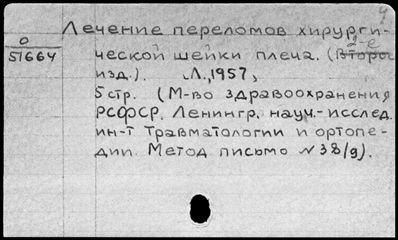 Лечение переломов хирурги-
О
51664
ческой шейки плеча. (Второе
2-е
изд.). Л., 1957,
5 стр. (М-во здравоохранения
РСФСР. Ленингр. науч.-исслед.
ин-т травматологии и ортопе-
дии. Метод. письмо №38/9).